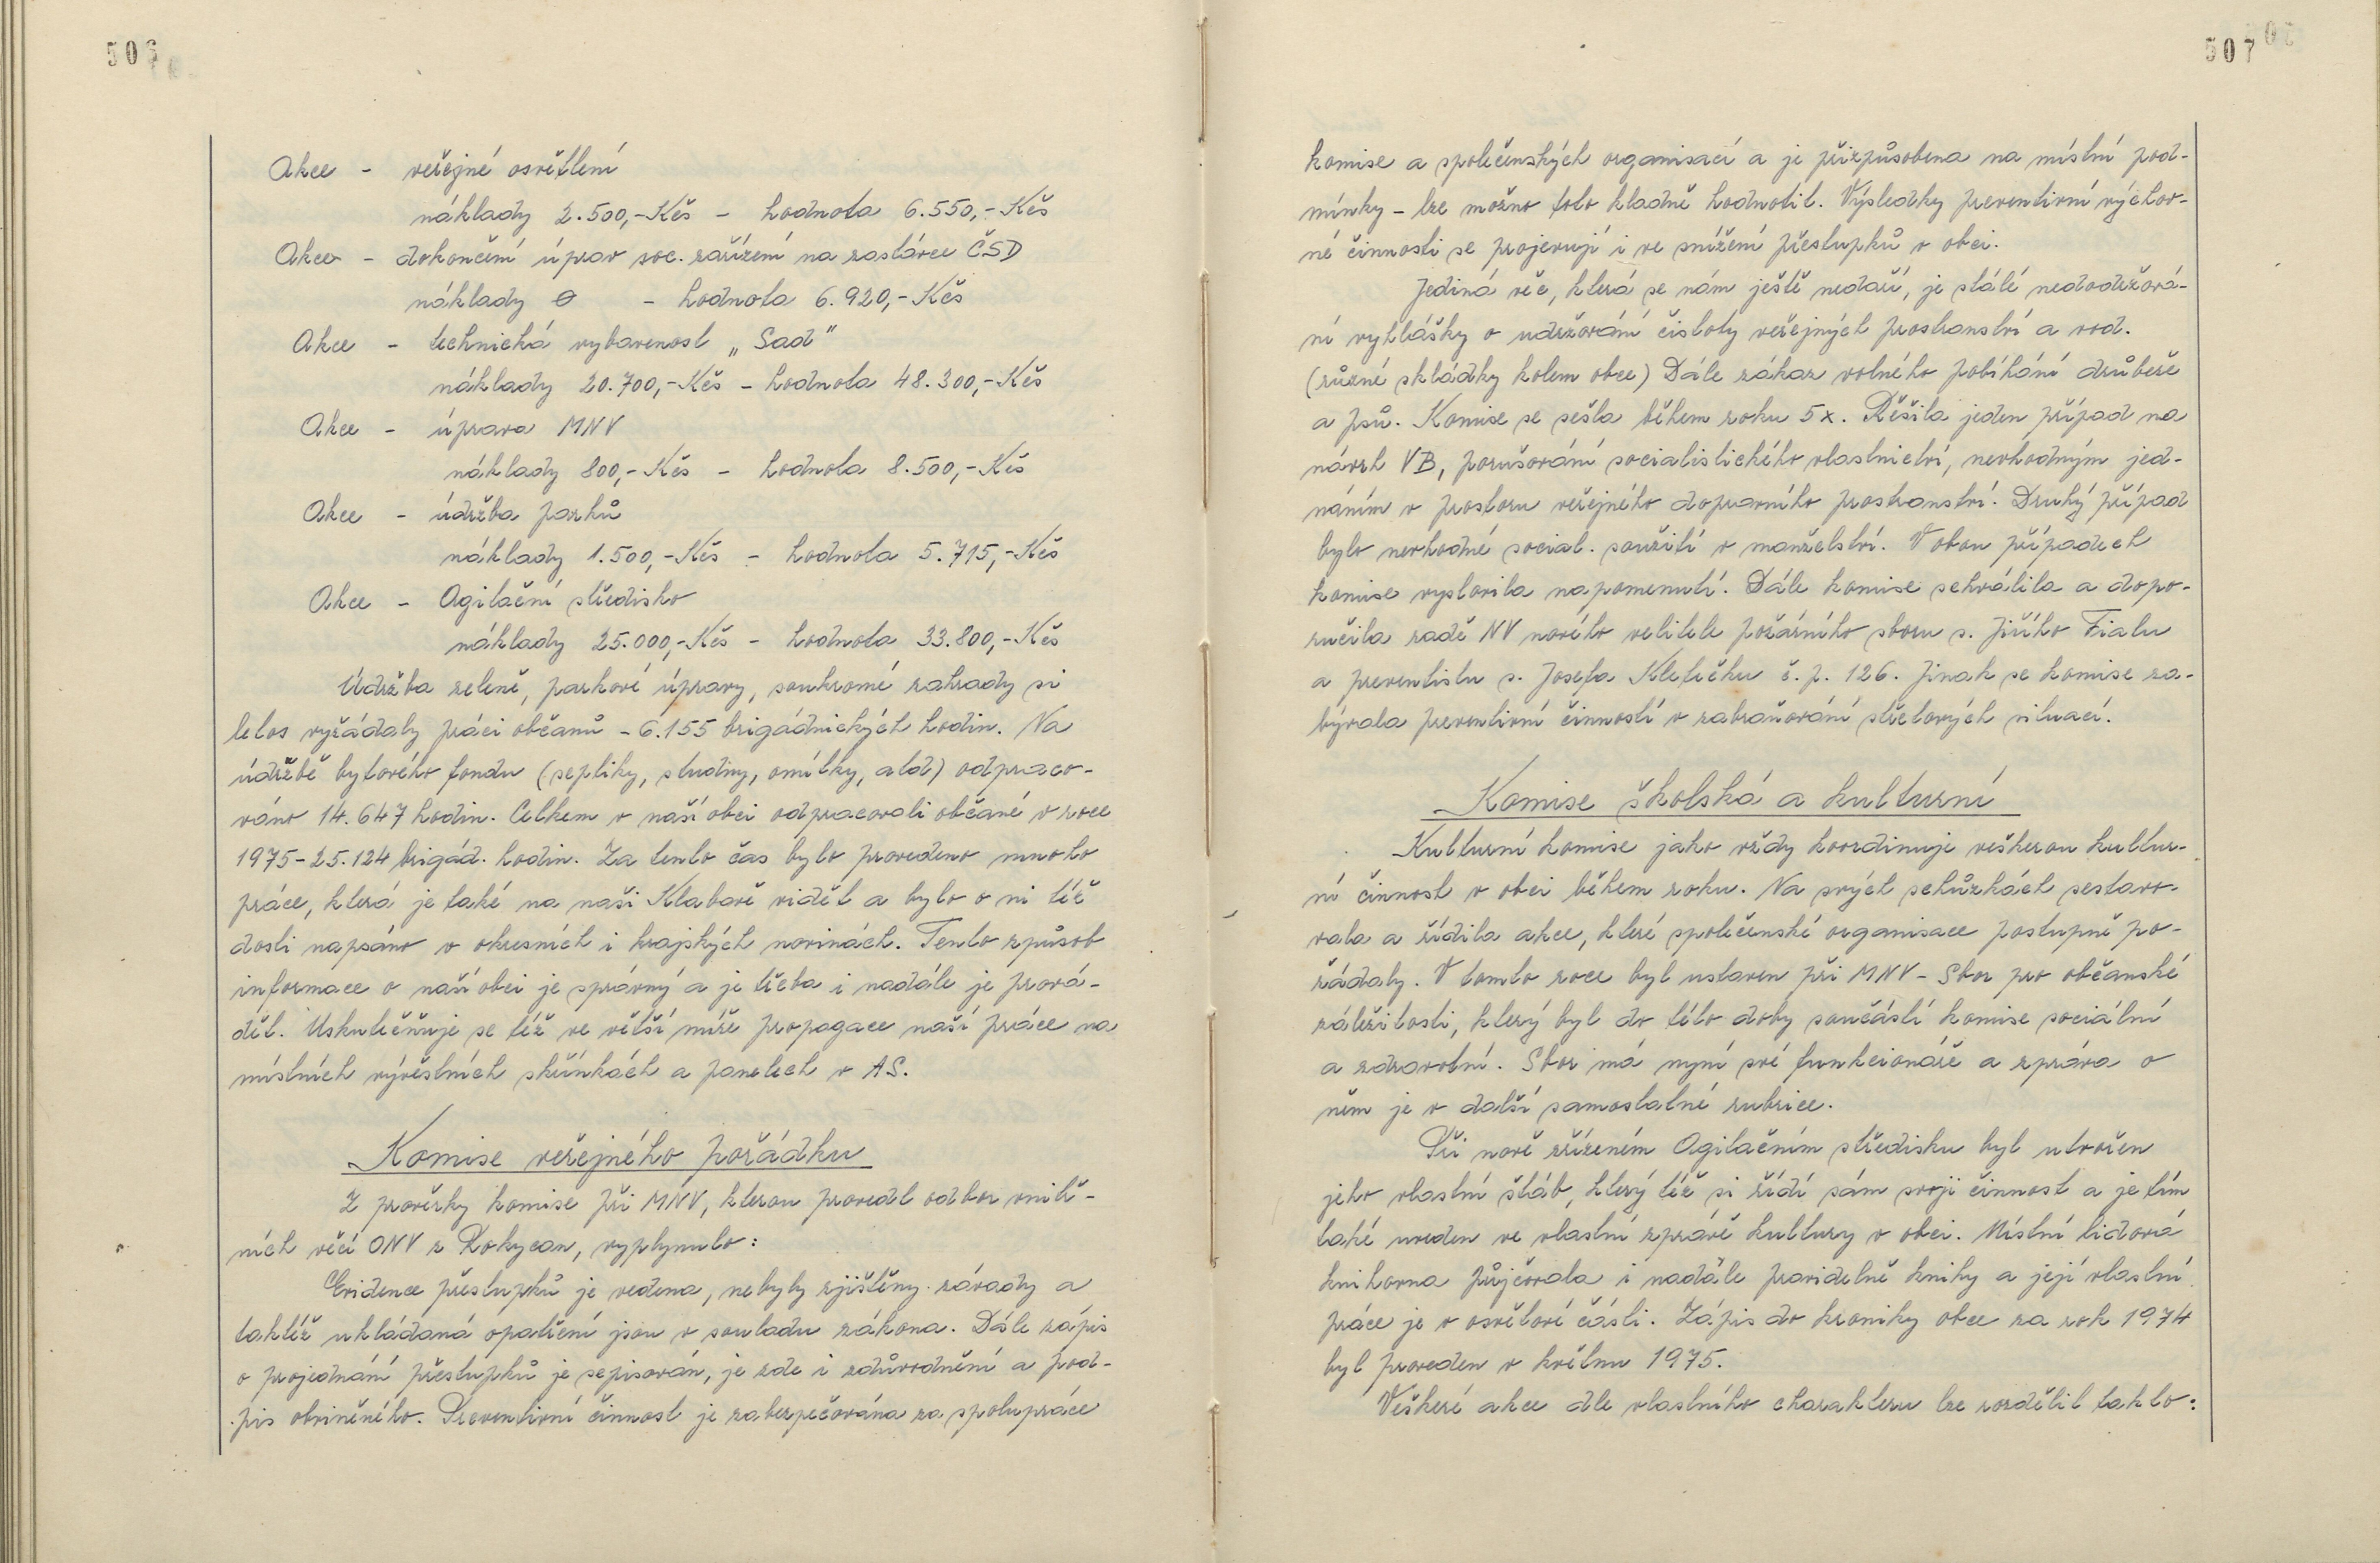 506
Akce - veřejné osvětlení
náklady 2.500,-Kčs - hodnota 6.550,-Kčs
Akce - dokončení úprav soc. zařízení na zastávce ČSD
náklady 0 - hodnota 6.920,-Kčs
Akce - technická vybavenost „Sad"
náklady 20.700,-Kčs - hodnota 48.300,-Kčs
Akce - úprava MNV
náklady 800,-Kčs - hodnota 8.500,-Kčs
Akce - údržba parků
náklady 1.500,-Kčs - hodnota 5.715,-Kčs
Akce - Agitační středisko
náklady 25.000,-Kčs - hodnota 33.800,-Kčs
Údržba zeleně, parkové úpravy, soukromé zahrady si
letos vyžádaly práci občanů - 6.155 brigádnických hodin. Na
údržbě bytového fondu (septiky, studny, omítky, atd) odpraco-
váno 14.647 hodin. Celkem v naší obci odpracovali občané v roce
1975 - 25.124 brigád. hodin. Za tento čas bylo provedeno mnoho
práce, která je také na naši Klabavě vidět a bylo o ni též
dosti napsáno v okresních i krajských novinách. Tento způsob
informace o naší obci je správný a je třeba i nadále je prová-
dět. Uskutečňuje se též ve větší míře propagace naší práce na
místních vývěstních skříňkách a panelech v AS.
Komise veřejného pořádku
Z prověrky komise při MNV, kterou provedl odbor vnitř-
ních věcí ONV z Rokycan, vyplynulo:
Evidence přestupků je vedena, nebyly zjištěny závady a
taktéž ukládaná opatření jsou v souladu zákona. Dále zápis
o projednání přestupků je sepisován, je zde i zdůvodnění a pod-
pis obviněného. Preventivní činnost je zabezpečována za spolupráce
507
komise a společenských organisací a je přizpůsobena na místní pod-
mínky - lze možno toto kladně hodnotit. Výsledky preventivní výchov-
né činnosti se projevují i ve snížení přestupků v obci.
Jediná věc, která se nám ještě nedaří, je stálé nedodržová-
ní vyhlášky o udržování čistoty veřejných prostranství a vod.
(různé skládky kolem obce) Dále zákaz volného pobíhání drůbeže
a psů. Komise se sešla během roku 5x. Řěšila jeden případ na
návrh VB, porušování socialistického vlastnictví, nevhodným jed-
náním v prostoru veřejného dopravního prostranství. Druhý případ
bylo nevhodné social. soužití v manželství. V obou případech
komise vyslovila napomenutí. Dále komise schválila a dopo-
ručila radě NV nového velitele požárního sboru s. Jiřího Fialu
a preventistu s. Josefa Kletečku č.p. 126. Jinak se komise za-
bývala preventivní činností v zabraňování střetových situací.
Komise školská a kulturní
Kulturní komise jako vždy koordinuje veškerou kultur-
ní činnost v obci během roku. Na svých schůzkách sestavo-
vala a řídila akce, které společenské organisace postupně po-
řádaly. V tomto roce byl ustaven při MNV - Sbor pro občanské
záležitosti, který byl do této doby součástí komise sociální
a zdravotní. Sbor má nyní své funkcionáře a zpráva o
něm je v další samostatné rubrice.
Při nově zřízeném Agitačním středisku byl utvořen
jeho vlastní štáb, který též si řídí sám svoji činnost a je tím
také uveden ve vlastní zprávě kultury v obci. Místní lidová
knihovna půjčovala i nadále pravidelně knihy a její vlastní
práce je v osvětové části. Zápis do kroniky obce za rok 1974
byl proveden v květnu 1975.
Veškeré akce dle vlastního charakteru lze rozdělit takto: